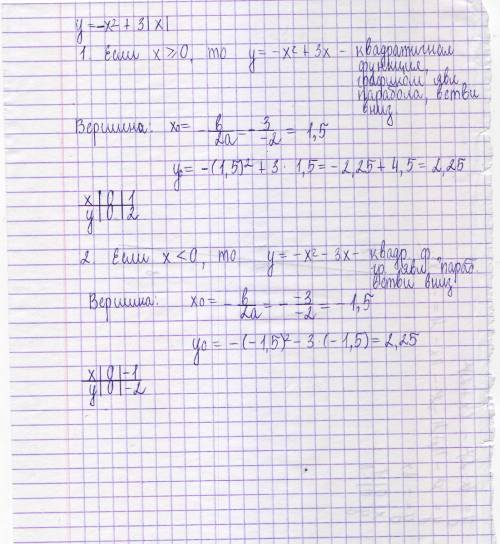 y=-x²+3|x|
1. Если x≥0, то y= -x²+3x - квадратичная
функция,
графиком явл.
парабола, ветви
вниз
Вершина: x₀= -b/2a = -3/-2 = 1,5
y₀= -(1,5)²+3·1,5= -2,25+4,5=2,25
x|0|1
y|0|2
2 Если x<0, то y= -x²-3x- квадр. ф.
гр. явл. параб.
ветви вниз
Вершина: x₀= -b/2a = - -3/-2 = -1,5
y₀ = -(-1,5)²-3·(-1,5)=2,25
x|0|-1
y|0|-2